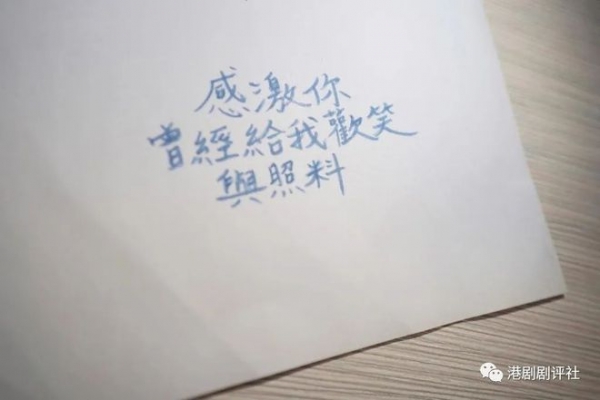 感激你
曾經給我歡笑
與照料
港剧剧评社